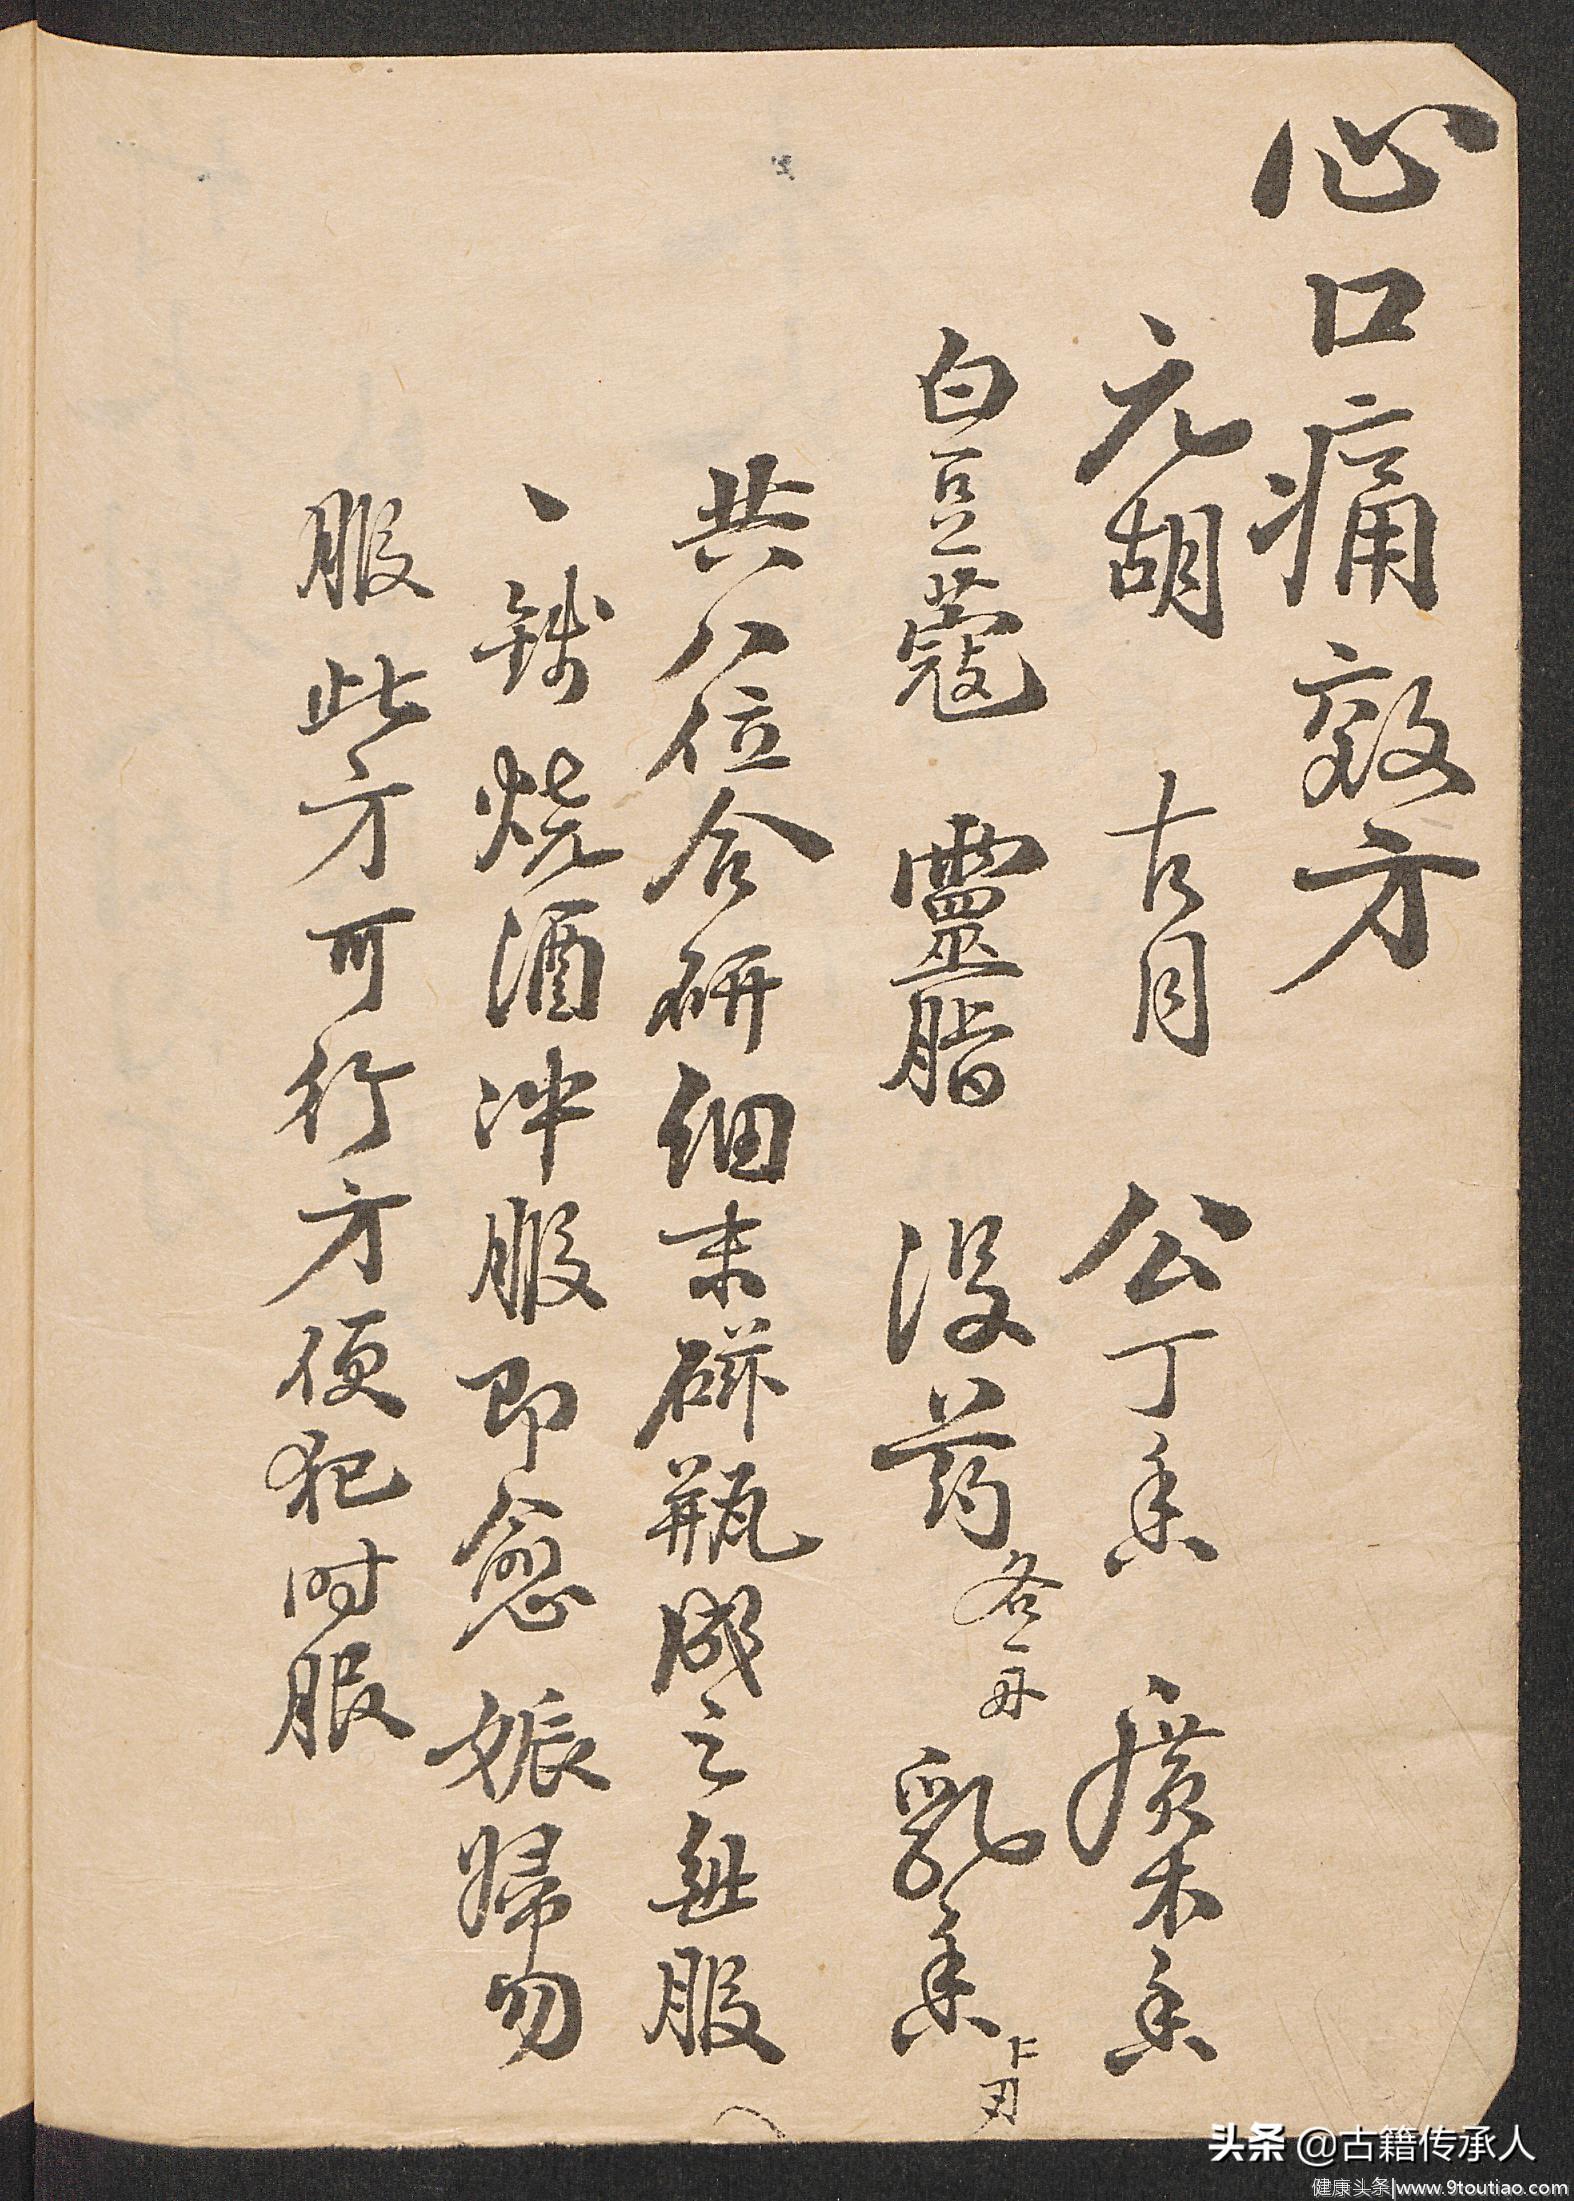 心口痛效方
元胡 古月 公丁香 广木香
白豆蔻 靈脂 没药 各一 乳香
共八位合研细末磁瓶成之每服
钱烧酒冲服即愈娠婦勿
服此方可行方便犯时服
头条 @古籍传承人
健康头条|www.9toutiao.com